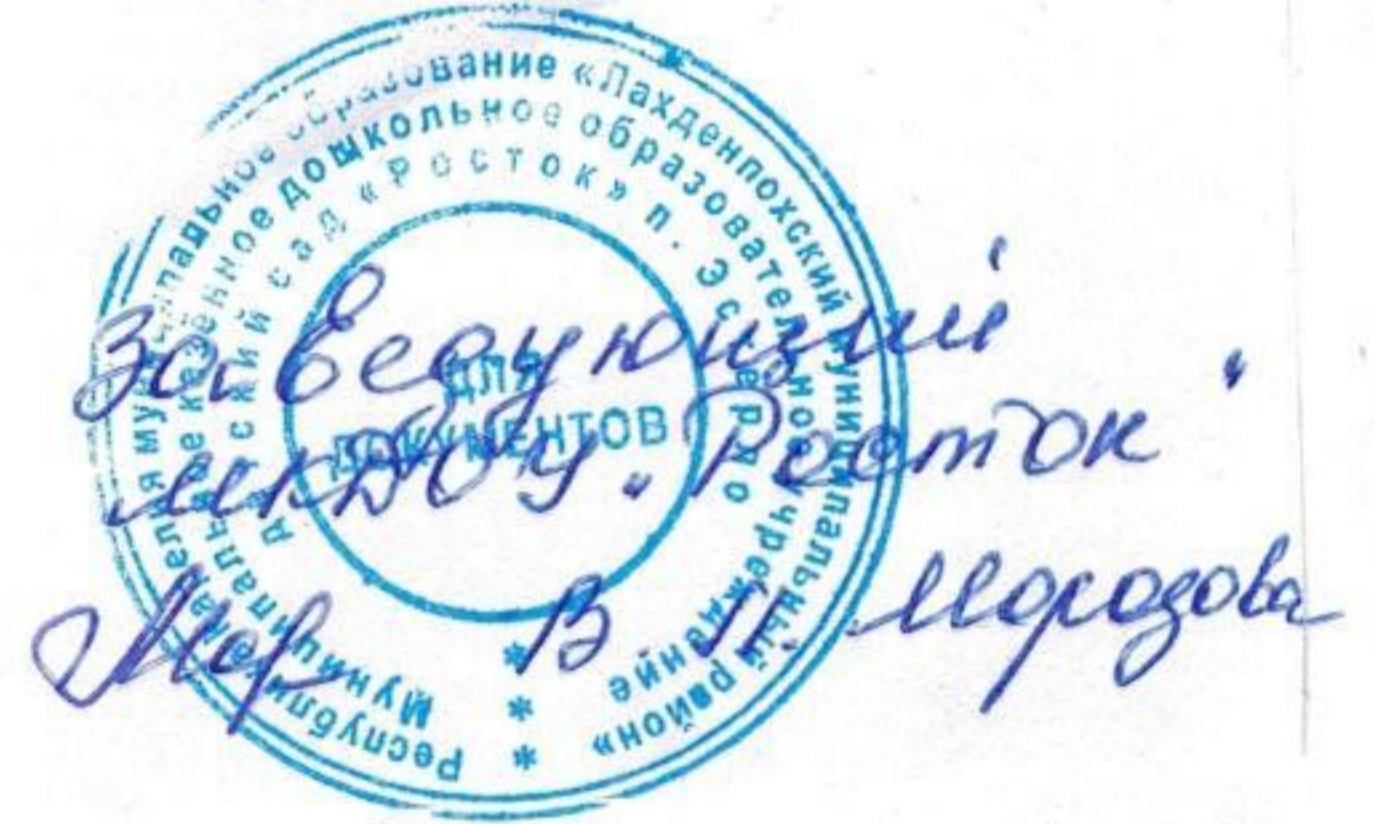 Республика Карелия муниципальное образование «Лахденпохский муниципальный район»
Муниципальное казённое дошкольное образовательное учреждение
детский сад «Росток» п. Эсс ерло
* * *
ДЛЯ
ДОКУМЕНТОВ
Заведующий
МКДОУ „Росток"
Мор В. П. Морозова